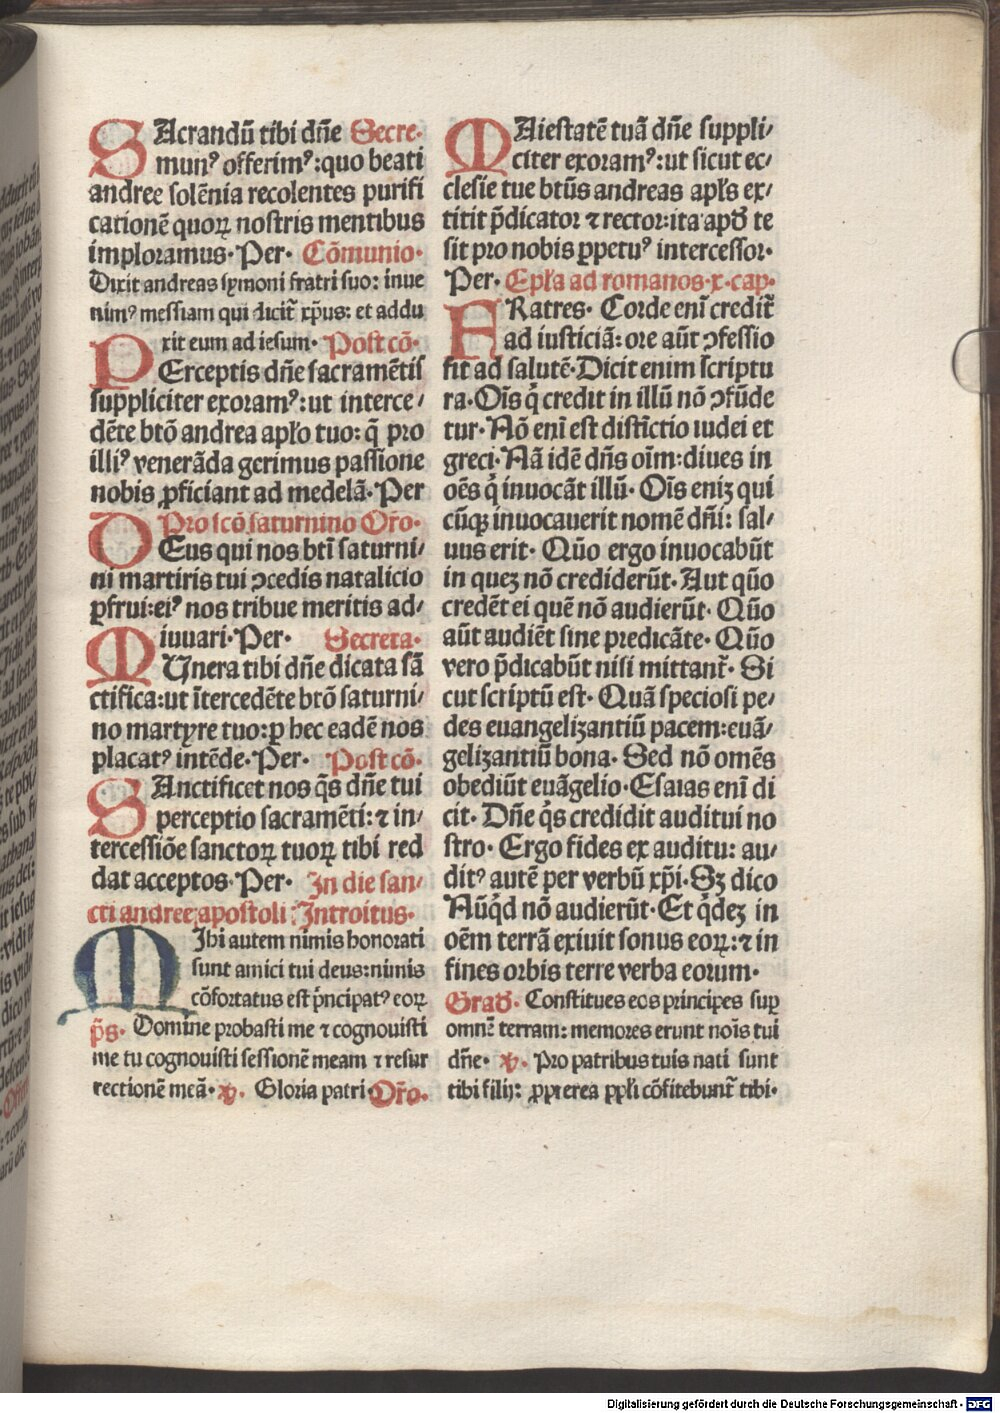 SAcrandū tibi dn̄e Secre·
mun⁹ offerim⁹:quo beati
andree solēnia recolentes purifi
cationē quoꝝ nostris mentibus
imploramus·Per· Cōmunio·
Dixit andreas symoni fratri suo: inue
nim⁹ messiam qui dicit᷑ xp̄us: et addu
xit eum ad iesum· Post cō·
PErceptis dn̄e sacramētis
suppliciter exoram⁹:ut interce/
dēte btō andrea apło tuo: q̄ pro
illi⁹ venerāda gerimus passione
nobis ꝓficiant ad medelā·Per
Pro scō saturnino Or̄o·
DEus qui nos btī saturni/
ni martiris tui ꝯcedis natalicio
ꝑfrui:ei⁹ nos tribue meritis ad/
iuuari·Per· Secreta·
MUnera tibi dn̄e dicata sā
ctifica:ut ītercedēte btō saturni/
no martyre tuo:ꝑ hec eadē nos
placat⁹ intēde·Per· Post cō·
SAnctificet nos q̄s dn̄e tui
perceptio sacramēti: ⁊ in/
tercessiōe sanctoꝝ tuoꝝ tibi red
dat acceptos·Per· In die san/
cti andree apostoli Introitus·
MIhi autem nimis honorati
sunt amici tui deus:nimis
cōfortatus est p̄ncipat⁹ eoꝝ
p̄s· Domine probasti me ⁊ cognouisti
me tu cognouisti sessionē meam ⁊ resur
rectionē meā· ꝟ· Gloria patri·Or̄o·
MAiestatē tuā dn̄e suppli/
citer exoram⁹:ut sicut ec/
clesie tue bt̄us andreas apłs ex/
titit p̄dicator ⁊ rector:ita apđ te
sit pro nobis ꝑpetu⁹ intercessor·
Per· Epła ad romanos·x·cap·
FRatres· Corde enī credit᷑
ad iusticiā: ore aūt ꝯfessio
fit ad salutē·Dicit enim scriptu
ra·Oīs q̇ credit in illū nō ꝯfūde
tur·Nō enī est distīctio iudei et
greci·Nā idē dn̄s oīm:diues in
oēs q̇ inuocāt illū· Oīs eniꝫ qui
cūqꝫ inuocauerit nomē dn̄i: sal/
uus erit· Quō ergo inuocabūt
in queꝫ nō crediderūt·Aut quō
credēt ei quē nō audierūt· Quō
aūt audiēt sine predicāte· Quō
vero p̄dicabūt nisi mittant᷑· Si
cut scriptū est· Quā speciosi pe/
des euangelizantiū pacem:euā/
gelizantiū bona· Sed nō omēs
obediūt euāgelio·Esaias enī di
cit· Dn̄e q̇s credidit auditui no
stro· Ergo fides ex auditu: au/
dit⁹ autē per verbū xp̄i·Sꝫ dico
Nūq̇d nō audierūt·Et q̇deꝫ in
oēm terrā exiuit sonus eoꝝ:⁊ in
fines orbis terre verba eorum·
Gradꝰ· Constitues eos principes suꝑ
omnē terram: memores erunt noīs tui
dn̄e· ꝟ· Pro patribus tuis nati sunt
tibi filij: ꝓpterea ppłi cōfitebunt᷑ tibi·
Digitalisierung gefördert durch die Deutsche Forschungsgemeinschaft - DFG